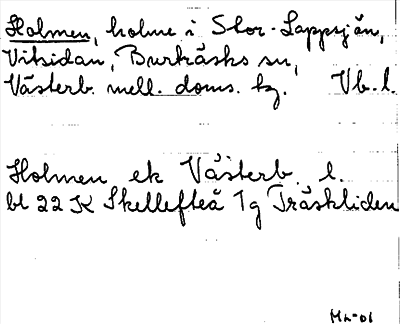 Holmen, holme i Stor-Lappsjön,
Vitsidan, Burträsks sn,
Västerb. mell. doms. bg. Vb. l.
Holmen ek Västerb. l.
bl 22 K Skellefteå 1g Träskliden